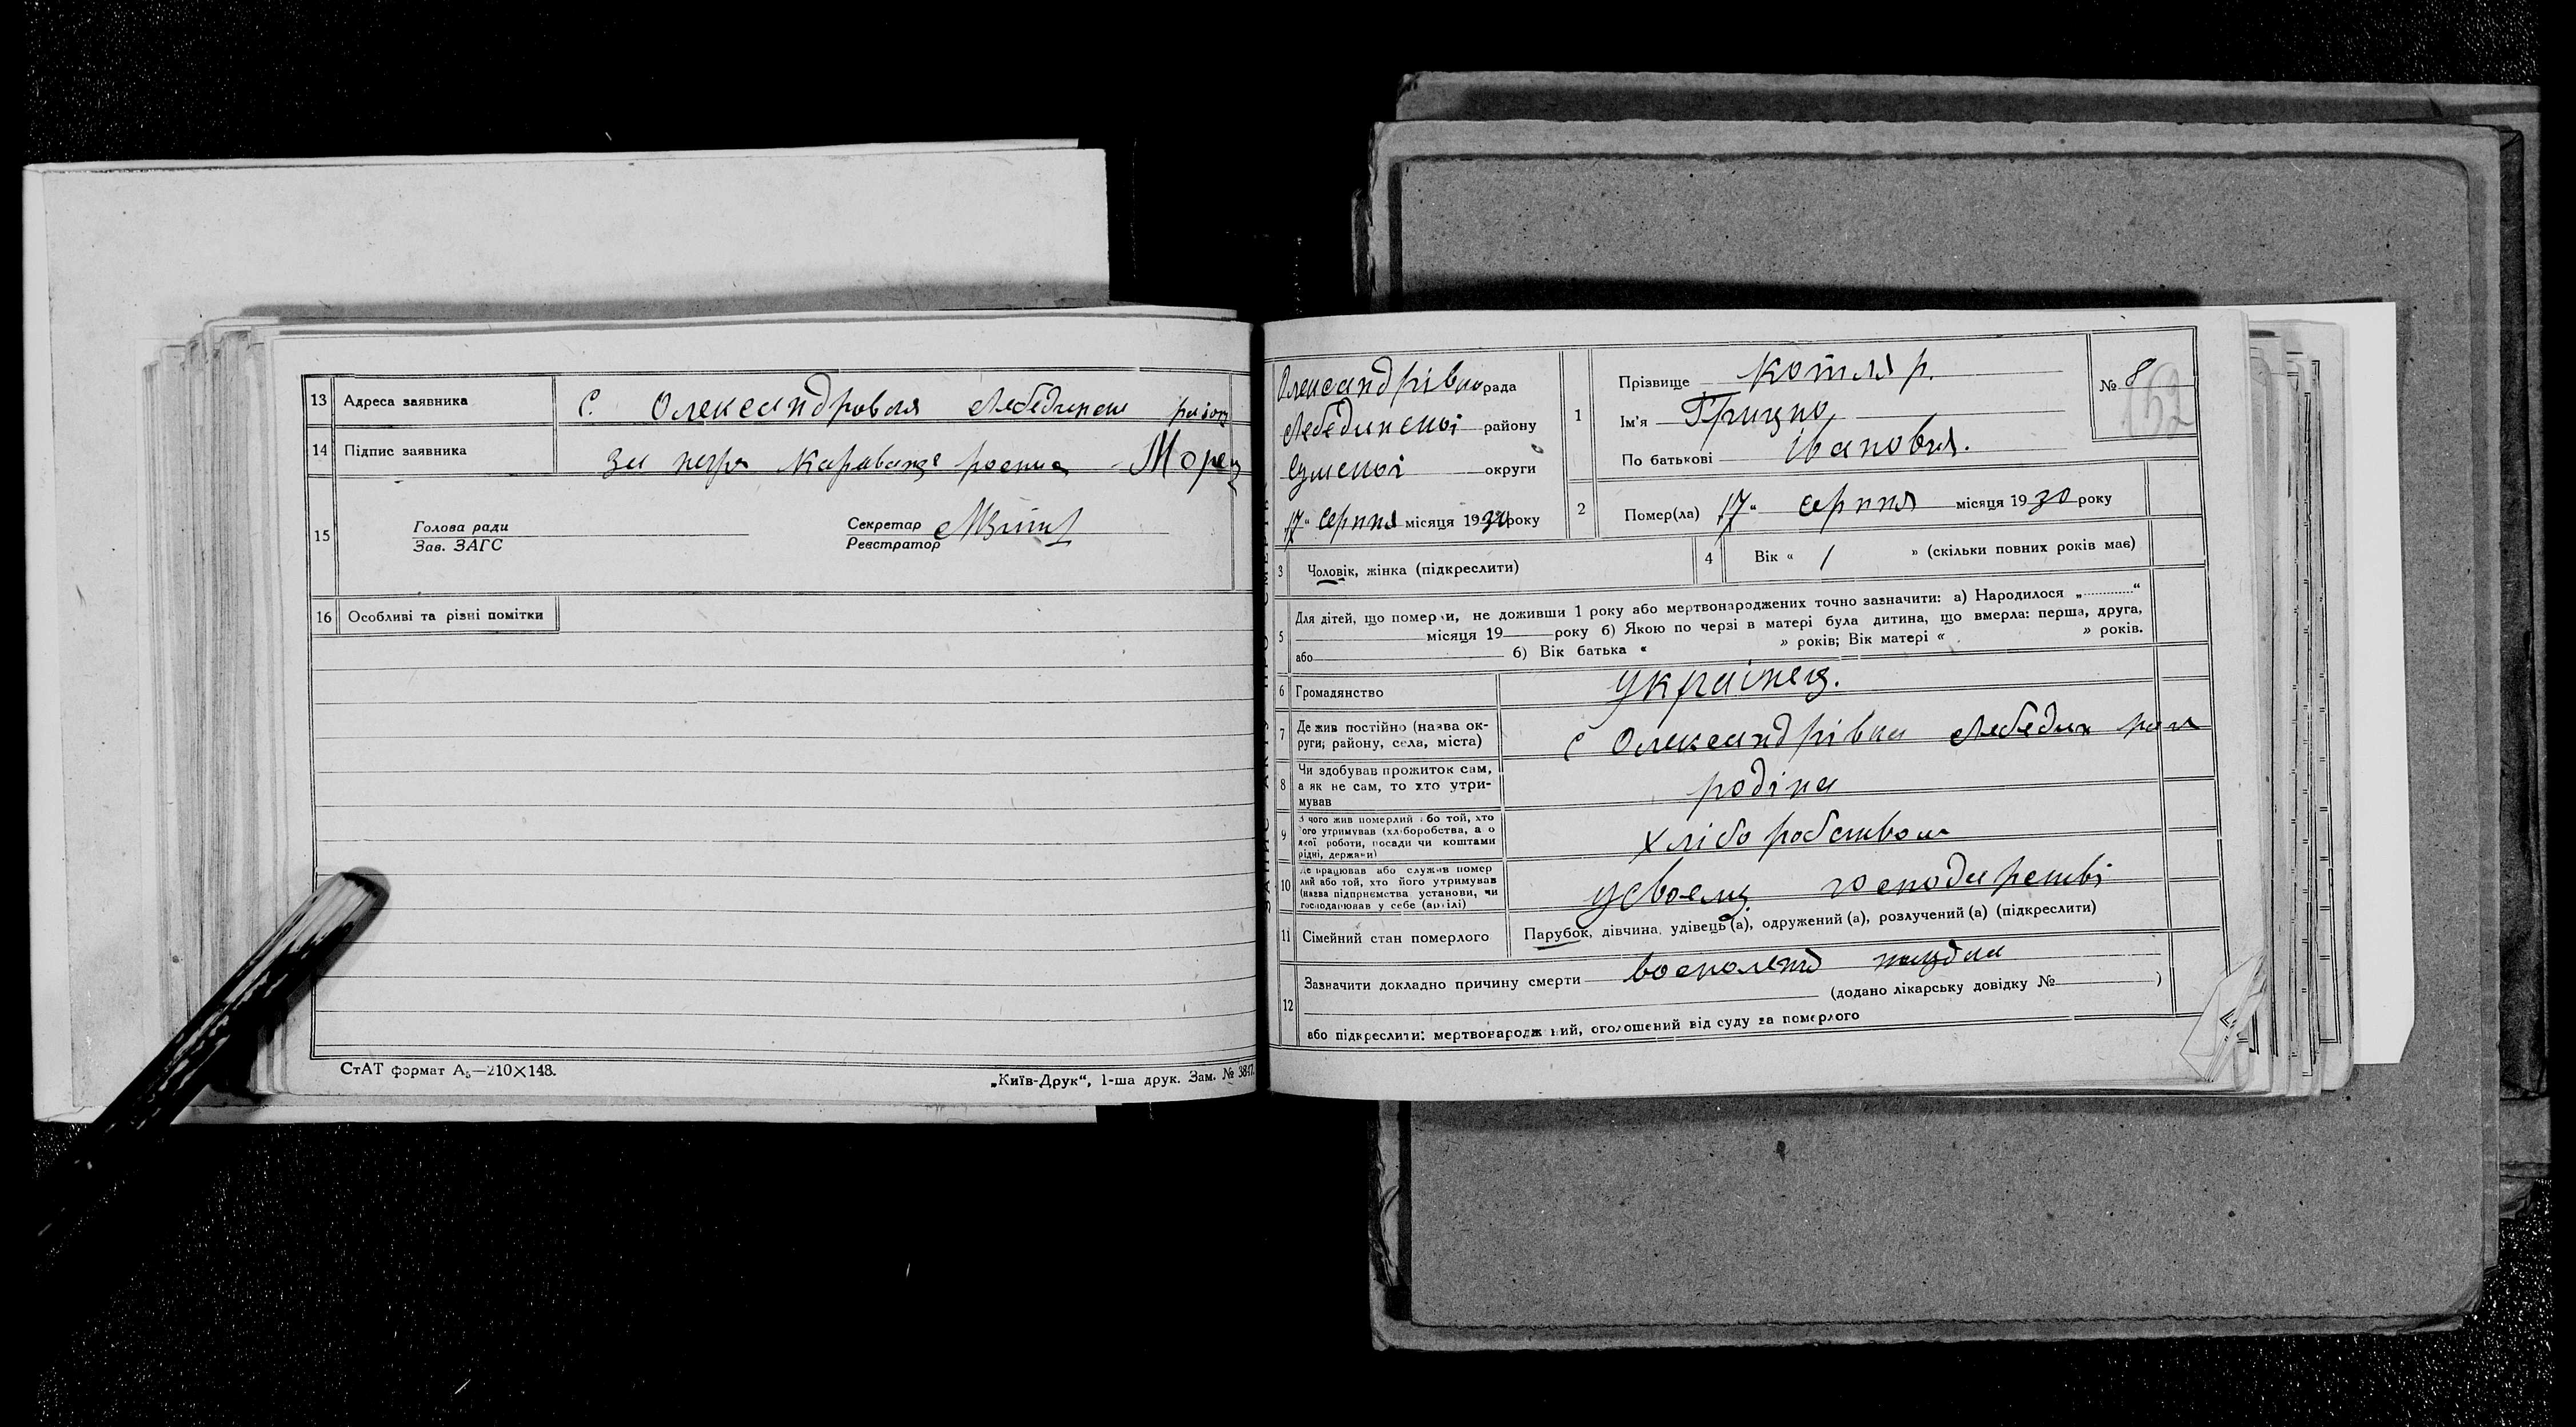 13 Адреса заявника С. Олександровка Лебединськ район
14 Підпис заявника за негр Караванда росписа Морец
15 Голова ради
Зав. ЗАГС
Секретар
Реєстратор
16 Особливі та різні помітки
СтАТ формат А₅—210×148.
„Київ-Друк“, 1-ша друк. Зам. № 3847.
Олександрівна рада
Лебединської району
Сумської округи
17" серпня місяця 1930 року
1 Прізвище Котляр.
Ім'я Грицко
По батькові Іванович.
№ 8
152
2 Помер(ла) 17" серпня місяця 1930 року
3 Чоловік, жінка (підкреслити)
4 Вік « 1 » (скільки повних років має)
5 Для дітей, що померли, не доживши 1 року або мертвонароджених точно зазначити: а) Народилося „ “
місяця 19 року б) Якою по черзі в матері була дитина, що вмерла: перша, друга,
або б) Вік батька « » років; Вік матері « » років.
6 Громадянство Українец.
7 Де жив постійно (назва округи, району, села, міста) с Олександрівка Лебедин рай
8 Чи здобував прожиток сам, а як не сам, то хто утримував родіна
9 З чого жив померлий або той, хто його утримував (хліборобства, а о якої роботи, посади чи коштами рідні, держави) хліборобством
10 Де працював або служив померлий або той, хто його утримував (назва підприємства установи, чи господарював у себе (артілі) усвоему господарстві
11 Сімейний стан померлого Парубок, дівчина, удівець (а), одружений (а), розлучений (а) (підкреслити)
12 Зазначити докладно причину смерти восполение
(додано лікарську довідку № )
або підкреслити: мертвонароджений, оголошений від суду за померлого